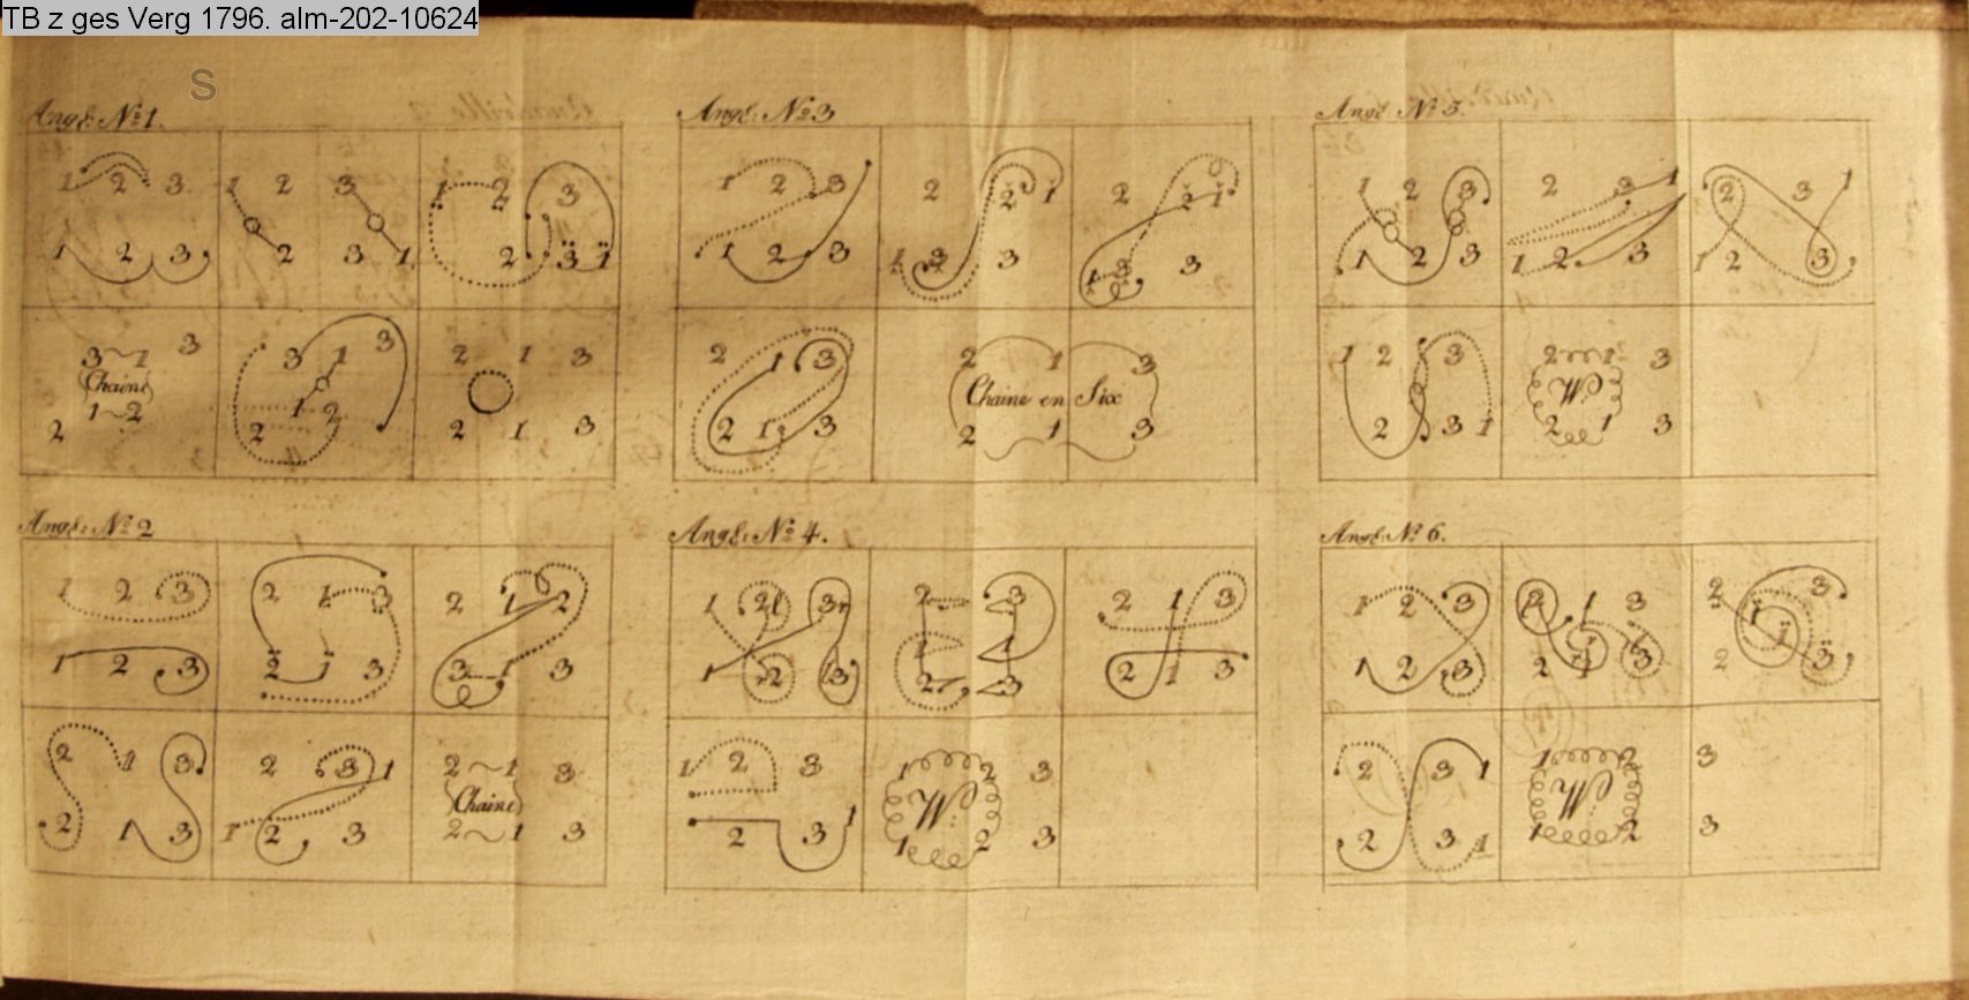 TB z ges Verg 1796. alm-202-10624
S
Angl: No 1.
1 2 3 1 2 3 1 2 3
1 2 3 2 3 1 2 3 1
3~1 3 3 1 3 2 1 3
Chaine
1~2
2 2 1 2 2 1 3
Angl: No 2
1 2 3 2 1 3 2 1 2
1 2 3 2 1 3 3 1 3
2 1 3 2 3 1 2~1 3
Chaine
2 1 3 1 2 3 2~1 3
Angl: No 3
1 2 3 2 2 1 2 2 1
1 2 3 1 3 3 1 3 3
2 1 3 2 1 3
Chaine en Six
2 1 3 2 1 3
Angl: No 4.
1 2l 3r 2 3 2 1 3
1
1 r2 l3 2 3 2 1 3
1 2 3 1 2 3
W:
2 3 1 1 2 3
Angl No 5.
1 2 3 2 3 1 2 3 1
1 2 3 1 2 3 1 2 3
1 2 3 2 1 3
W:
2 3 1 2 1 3
Angl: No 6.
1 2 3 2 1 3 2 1 3
1 2 3 2 1 3 2 1 3
2 3 1 1 2 3
W:
2 3 1 1 2 3